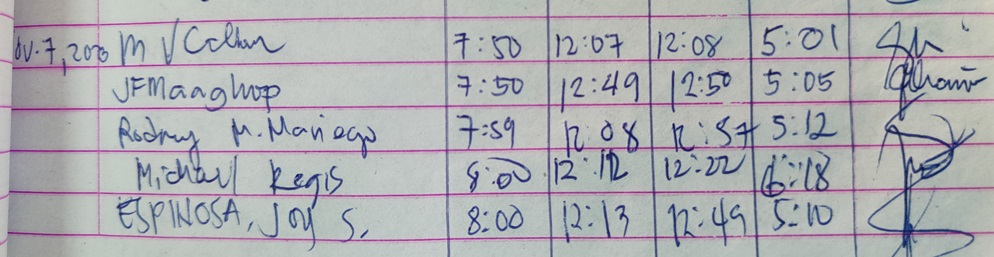 M V 7:50 12:07 12:08 5:01
JFMaaghop 7:50 12:49 12:50 5:05
Rodney M. Maniego 7:59 12:08 12:57 5:12
Michael Regis 8:00 12:12 12:22 6:18
ESPINOSA, JOY S. 8:00 12:13 12:49 5:10